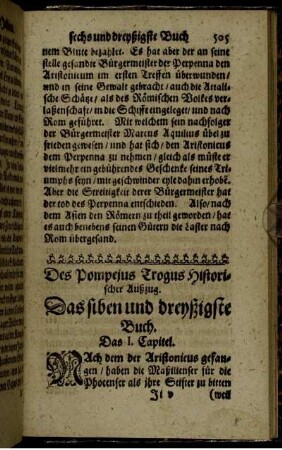 sechs und dreyßigste Buch 505
nem Blute bezahlet. Es hat aber der an seine
stelle gesandte Bürgermeister der Perpenna den
Aristonicum im ersten Treffen überwunden/
und in seine Gewalt gebracht/ auch die Attali-
sche Schätze/ als des Römischen Volkes ver-
laßenschaft/ in die Schiffe eingeleget/ und nach
Rom geführet. Mit welchem sein nachfolger
der Bürgermeister Marcus Aquilius übel zu
frieden gewesen/ und hat sich/ den Aristonicus
dem Perpenna zu nehmen/ gleich als müste er
vielmehr ein gebührendes Geschenke seines Tri-
umphs seyn/ mit geschwinder eyle dahin erhobē.
Aber die Streitigkeit derer Bürgermeister hat
der tod des Perpenna entschieden. Also/ nach
dem Asien den Römern zu theil geworden/ hat
es auch benebens seinen Gütern die Laster nach
Rom übergesand.
Des Pompejus Trogus Histori-
scher Außzug.
Das siben und dreyßigste
Buch.
Das I. Capitel.
NAch dem der Aristonicus gefan-
gen/ haben die Maßilienser für die
Phocenser als ihre Stifter zu bitten
Ii v (weil